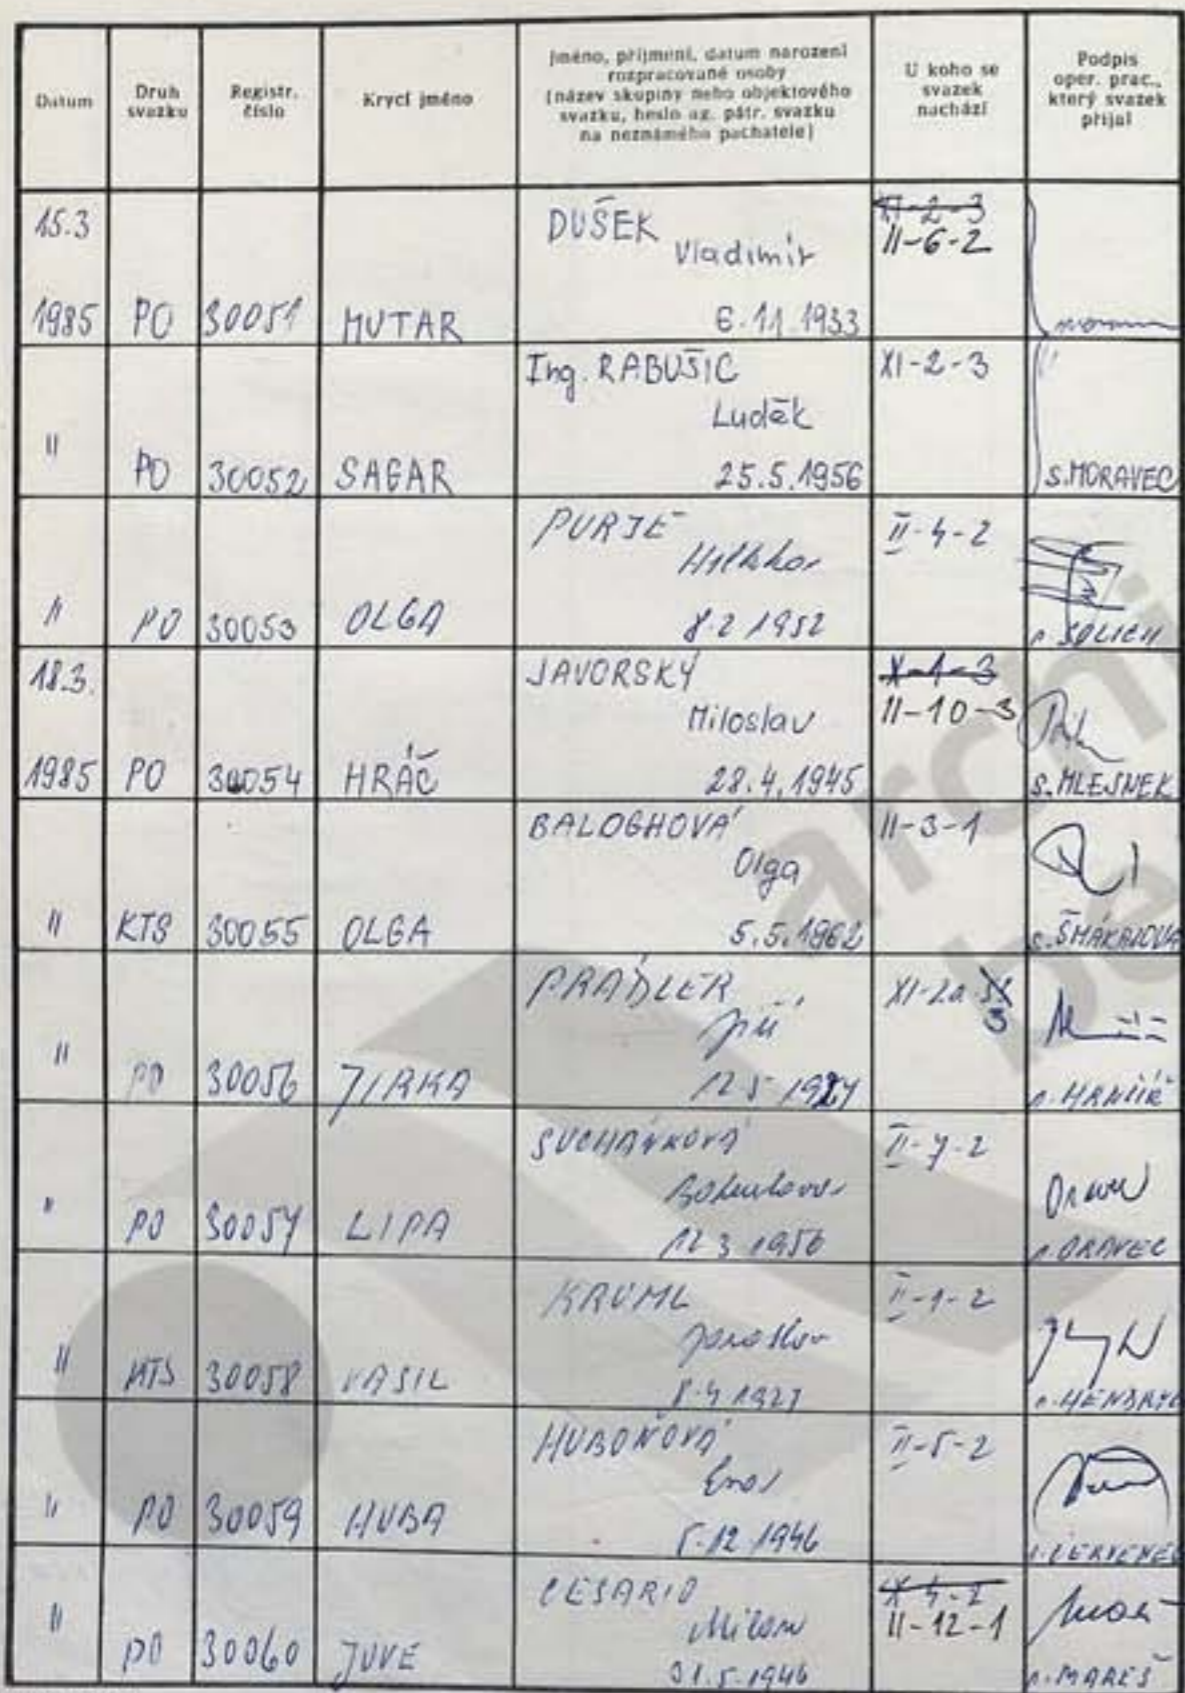 Datum
Druh
svazku
Registr.
číslo
Krycí jméno
Jméno, příjmení, datum narození
rozpracované osoby
(název skupiny nebo objektového
svazku, heslo ag. pátr. svazku
na neznámého pachatele)
U koho se
svazek
nachází
Podpis
oper. prac.,
který svazek
přijal
15.3
1985 PO 30051 MUTAR
DUŠEK
Vladimír
6.11.1933
XI-2-3
II-6-2
" PO 30052 SAGAR
Ing. RABUŠIC
Luděk
25.5.1956
XI-2-3
S.MORAVEC
" PO 30053 OLGA
PURJE
8.2 1952
II-4-2
18.3.
1985 PO 30054 HRÁČ
JAVORSKÝ
Miloslav
28.4.1945
X-1-3
II-10-3
S.MLEJNEK
" KTS 30055 OLGA
BALOGHOVÁ
Olga
5.5.1962
II-3-1
" PO 30056 JIRKA
PRÁDLER
Jiří
XI-2a
3
S.HRNČÍŘ
" PO 30057 LIPA
SUCHÁNKOVÁ
12 3 1956
II-7-2
S.ORAVEC
" KTS 30058 VASIL
KRUML
Jaroslav
8.4 1927
II-1-2
" PO 30059 HUBA
HUBOŇOVÁ
5.12.1946
II-5-2
" PO 30060 JUVE
CESARIO
Milan
31.5.1946
X-4-2
II-12-1
S.MAREŠ